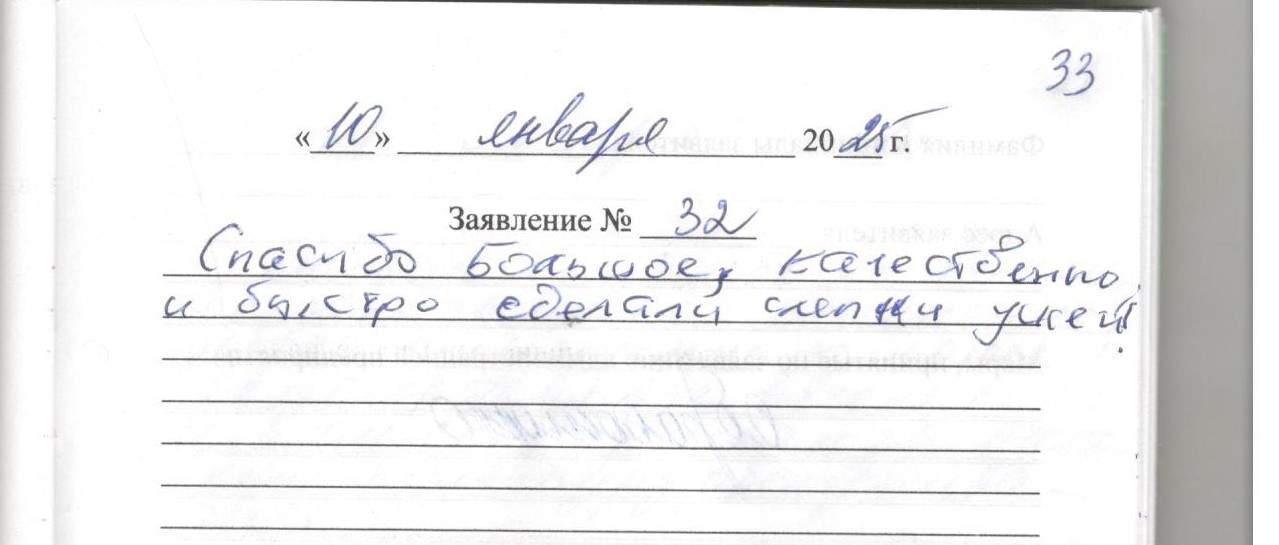 33
«10» января 2025 г.
Заявление № 32
Спасибо большое, качественно
и быстро сделали слепки ушей!